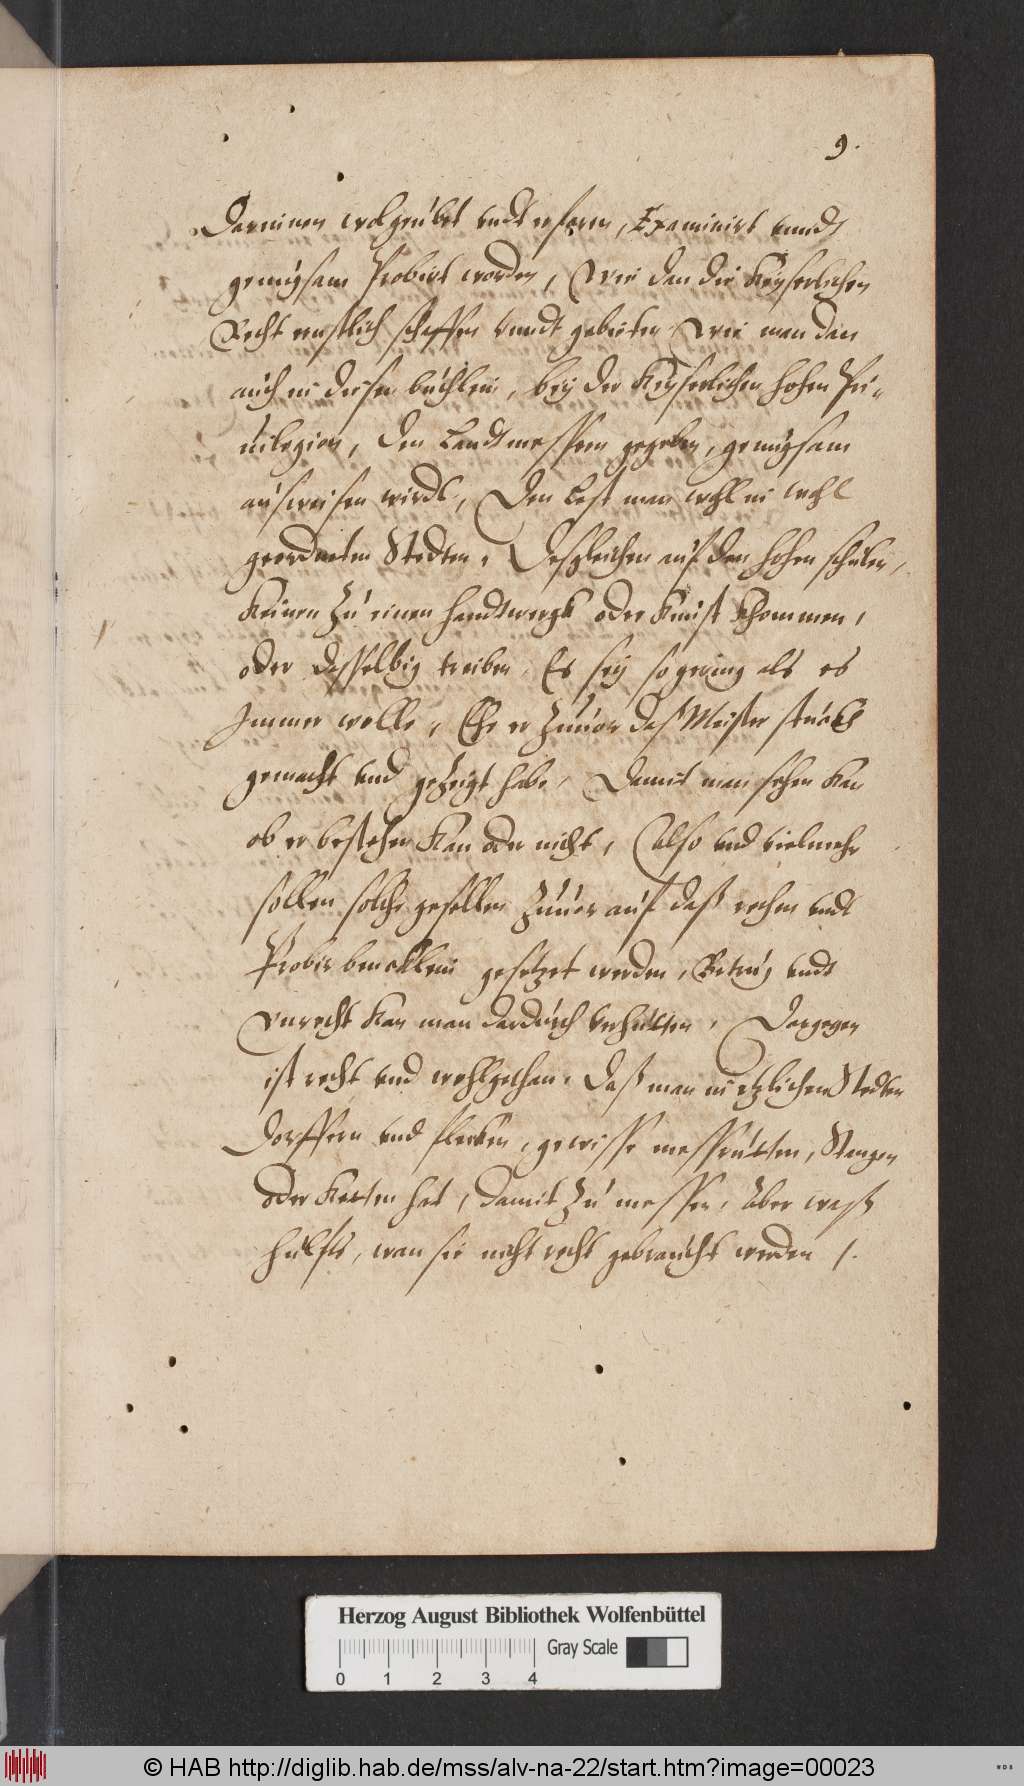 9.
Darinnen wolgeubet vndt erfarn, Examinirt vnndt
genugsam Probirt worden, Wie dan die Keyserlichen
Recht ernstlich schaffen vnndt gebieten Wie man dan
auch in diesen buchlein, bey der Keyserlichen hohen Pri-
uilegion, den Landtmessern gegeben, genugsam
ausweisen wirdt, Den lest man wohl in wohl
geordneten Stedten, Desgleichen auf den hohen schulen,
Keinen Zu einen handtwergk oder Kunst Khommen,
oder dasselbig treiben, Es sey so gering als es
Immer wolle, Ehe er Zuuor daß Meister stuckh
gemacht vnd gezeigt habe, Damit man sehen Kan
ob er bestehen Kan oder nicht, Also vnd vielmehr
sollen solche gesellen Zuuor auf daß rechen vndt
Probir gesetzet werden, Betrug vndt
Vnrecht Kan man dardurch verhutten, Dargegen
ist recht vnd wohlgethan, Daß man in etzlichen Stedten
Dorffern vnd flecken, gewisse messrutten, Stangen
oder Ketten hat, damit Zu messen, Aber waß
hulfts, wan sie nicht recht gebraucht werden /.
Herzog August Bibliothek Wolfenbüttel
Gray Scale
0 1 2 3 4
© HAB http://diglib.hab.de/mss/alv-na-22/start.htm?image=00023